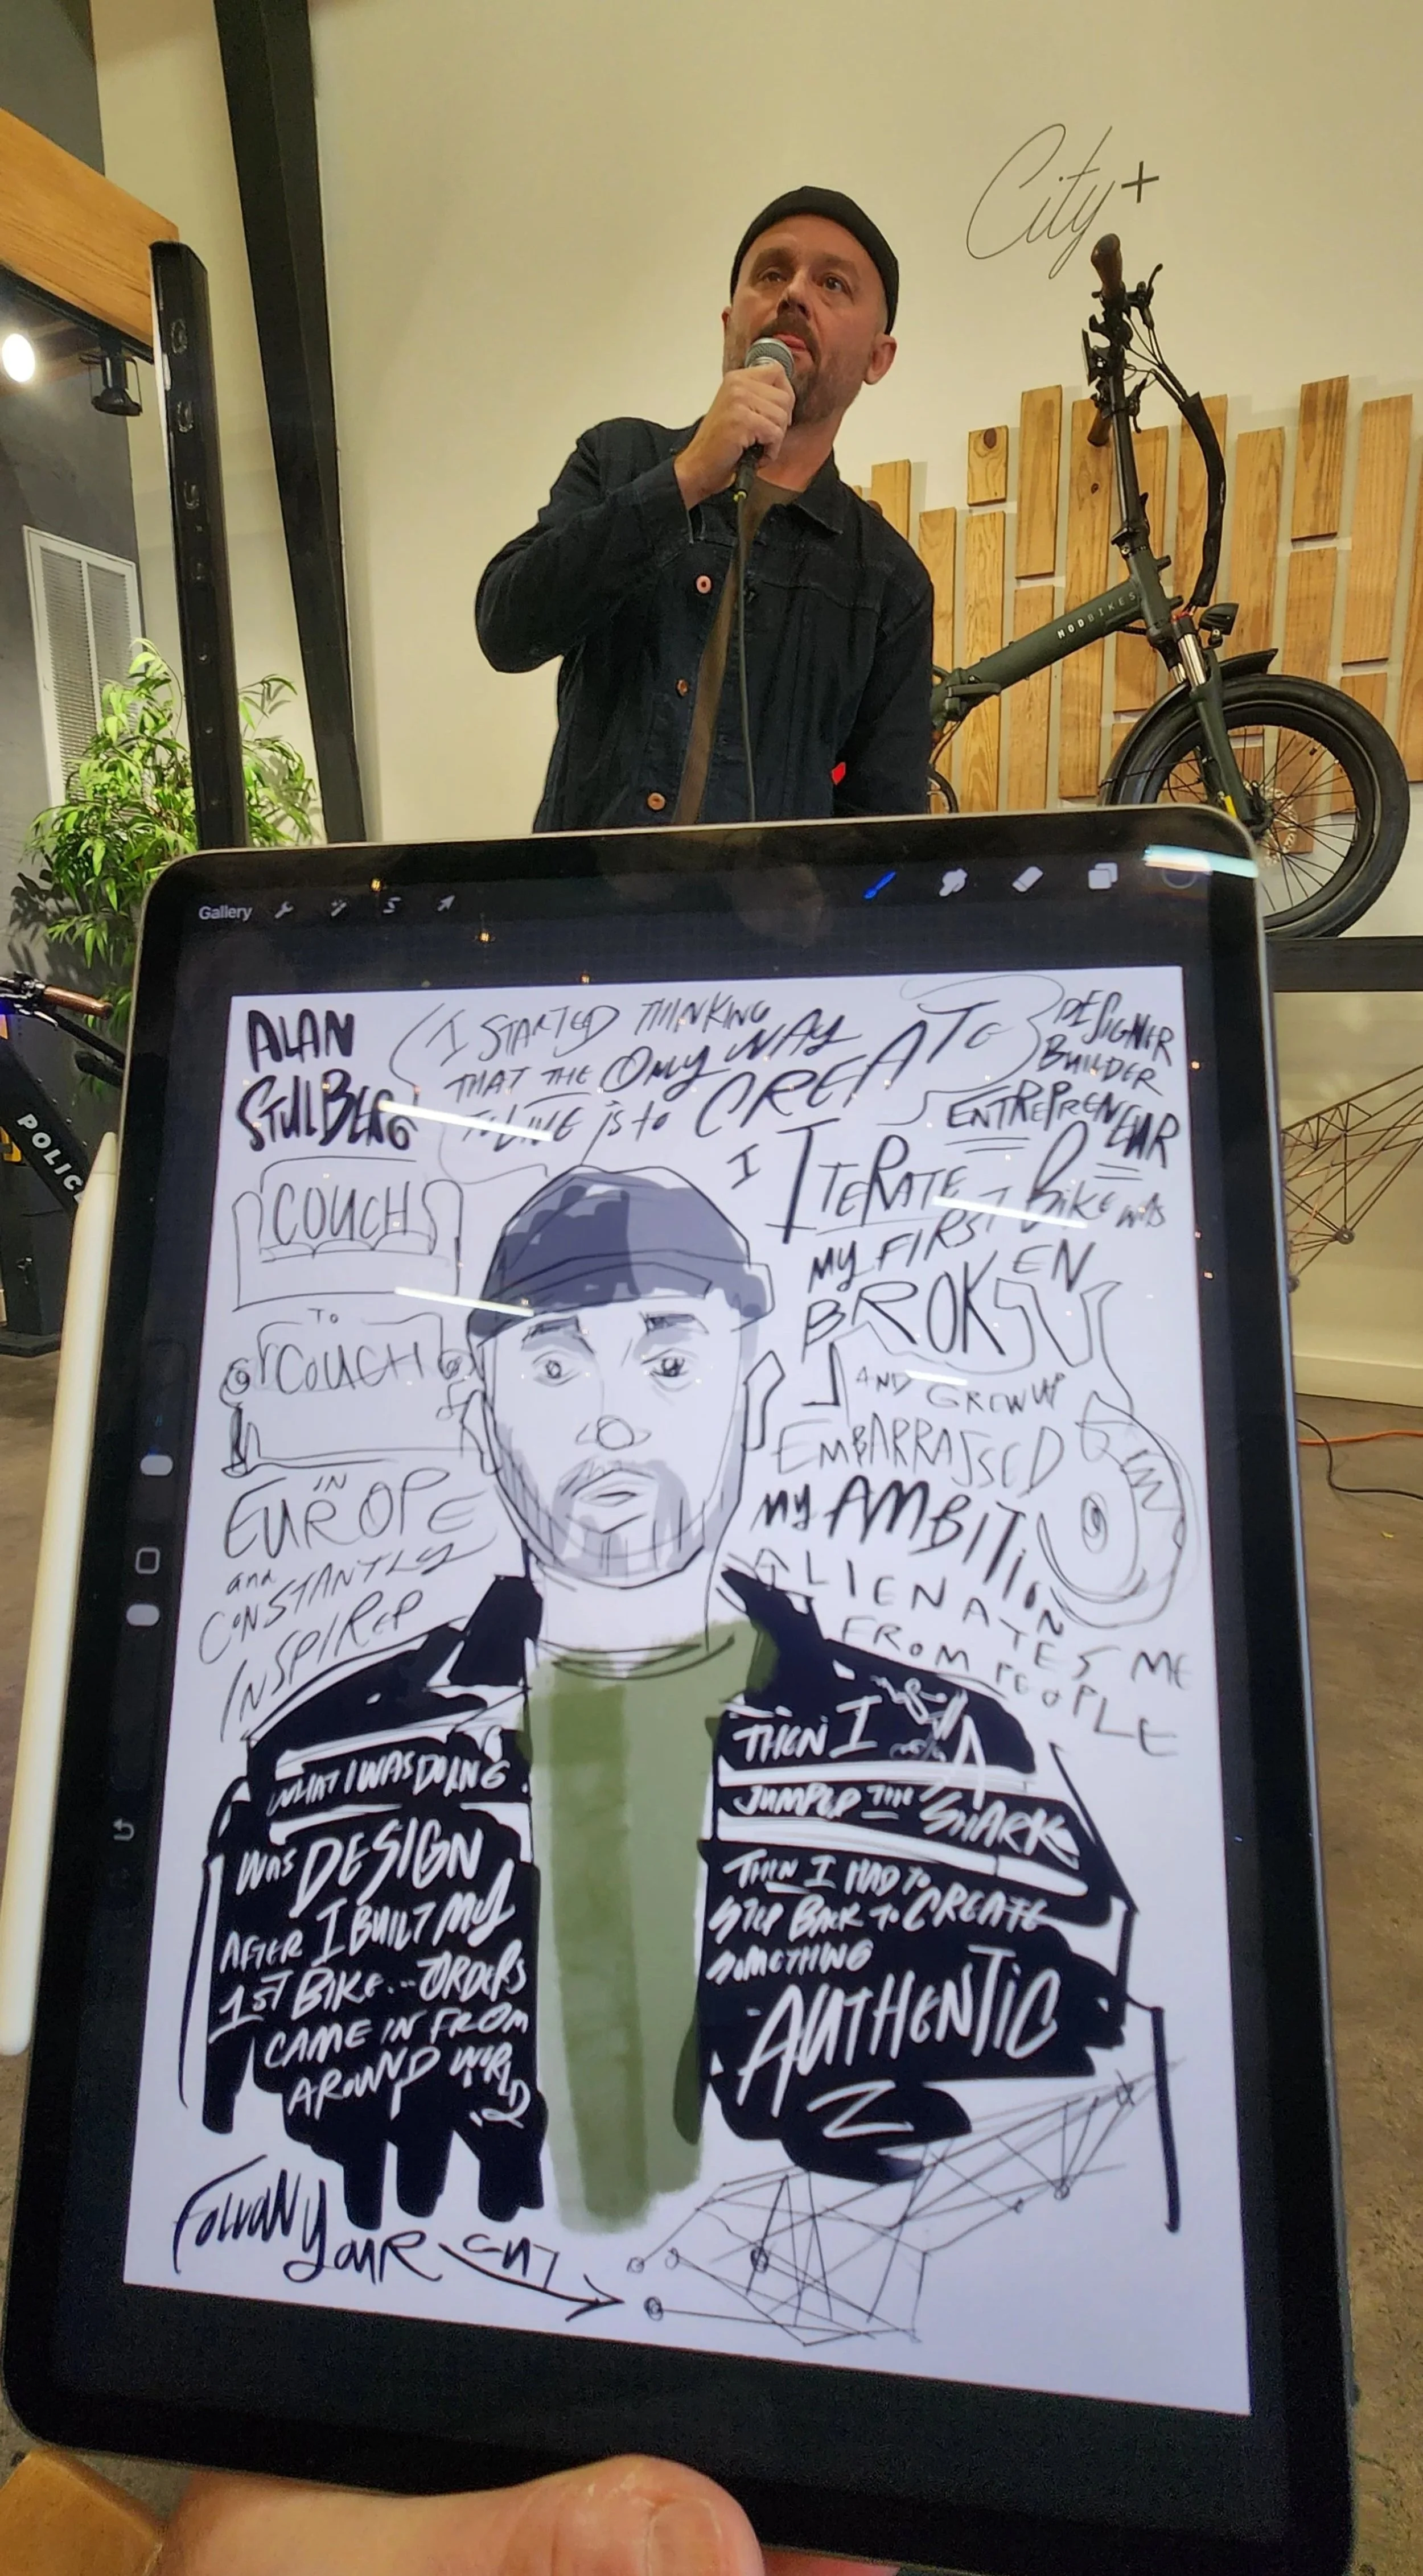 City+
MODBIKES
POLICE
Gallery
ALAN
STULBERG
I STARTED THINKING
THAT THE ONLY WAY
TO LIVE is to CREATE
DESIGNER
BUILDER
ENTREPRENEUR
I ITERATE
MY FIRST BIKE WAS
BROKEN
AND GREW UP
EMBARRASSED
MY AMBITION
ALIENATES ME
FROM PEOPLE
COUCH
TO
COUCH
IN
EUROPE
and
CONSTANTLY
INSPIRED
WHAT I WAS DOING
WAS DESIGN
AFTER I BUILT MY
1ST BIKE... ORDERS
CAME IN FROM
AROUND WORLD
THEN I
JUMPED THE SHARK
THEN I HAD TO
STEP BACK TO CREATE
SOMETHING
AUTHENTIC
FOLLOW
YOUR GUT